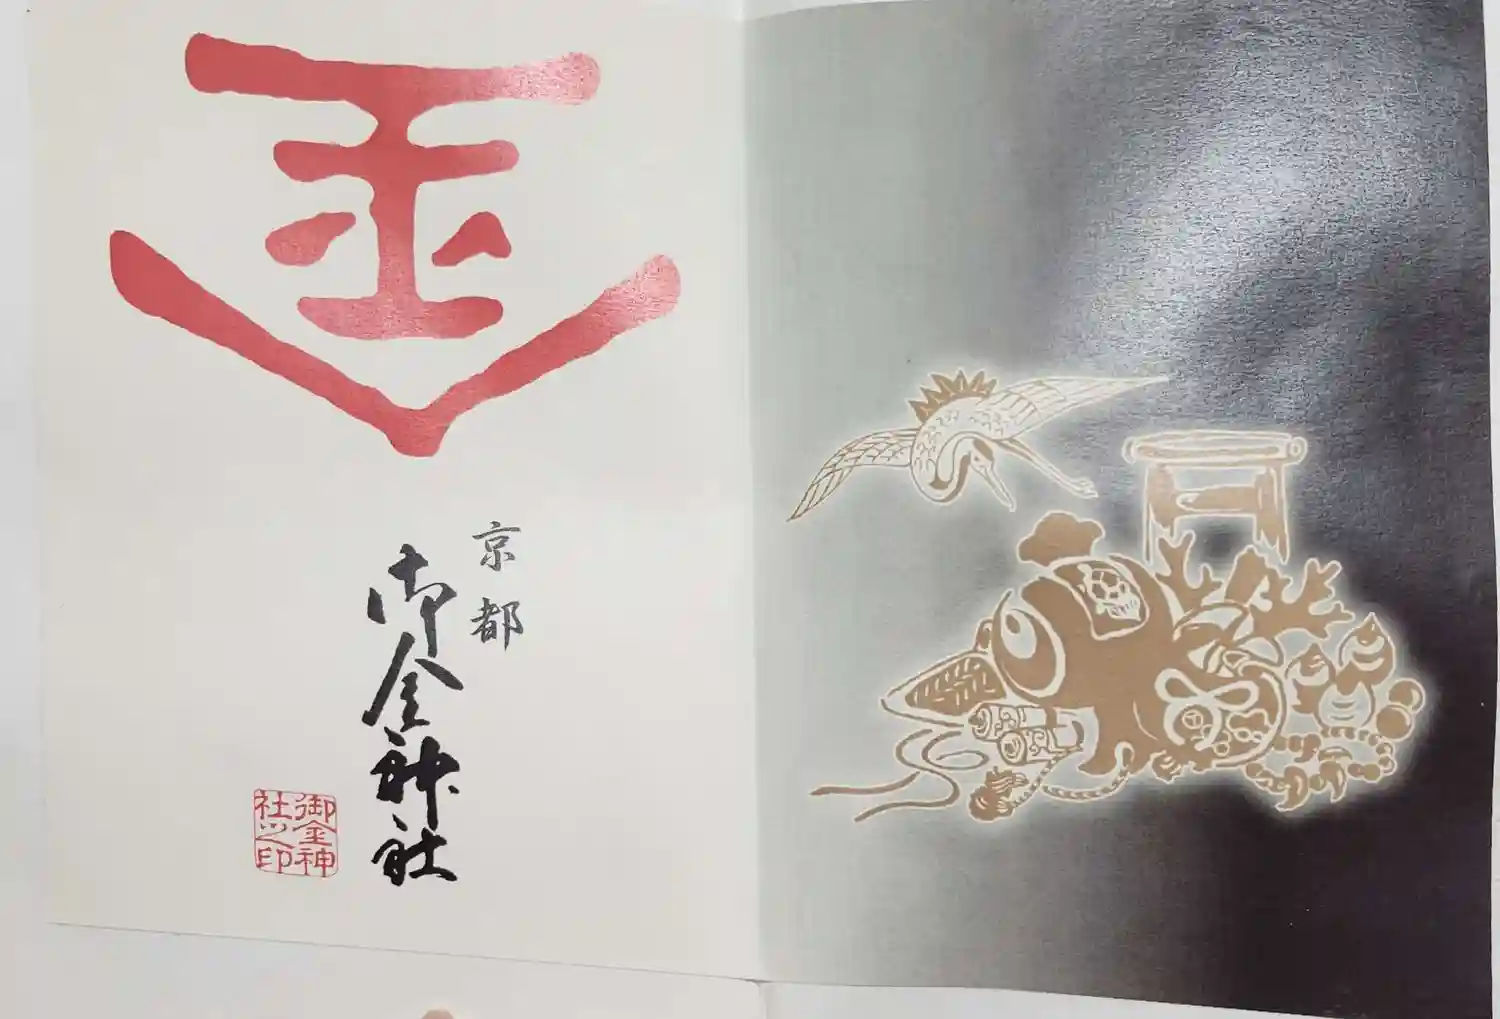 金
京都
御金神社
御金神
社之印